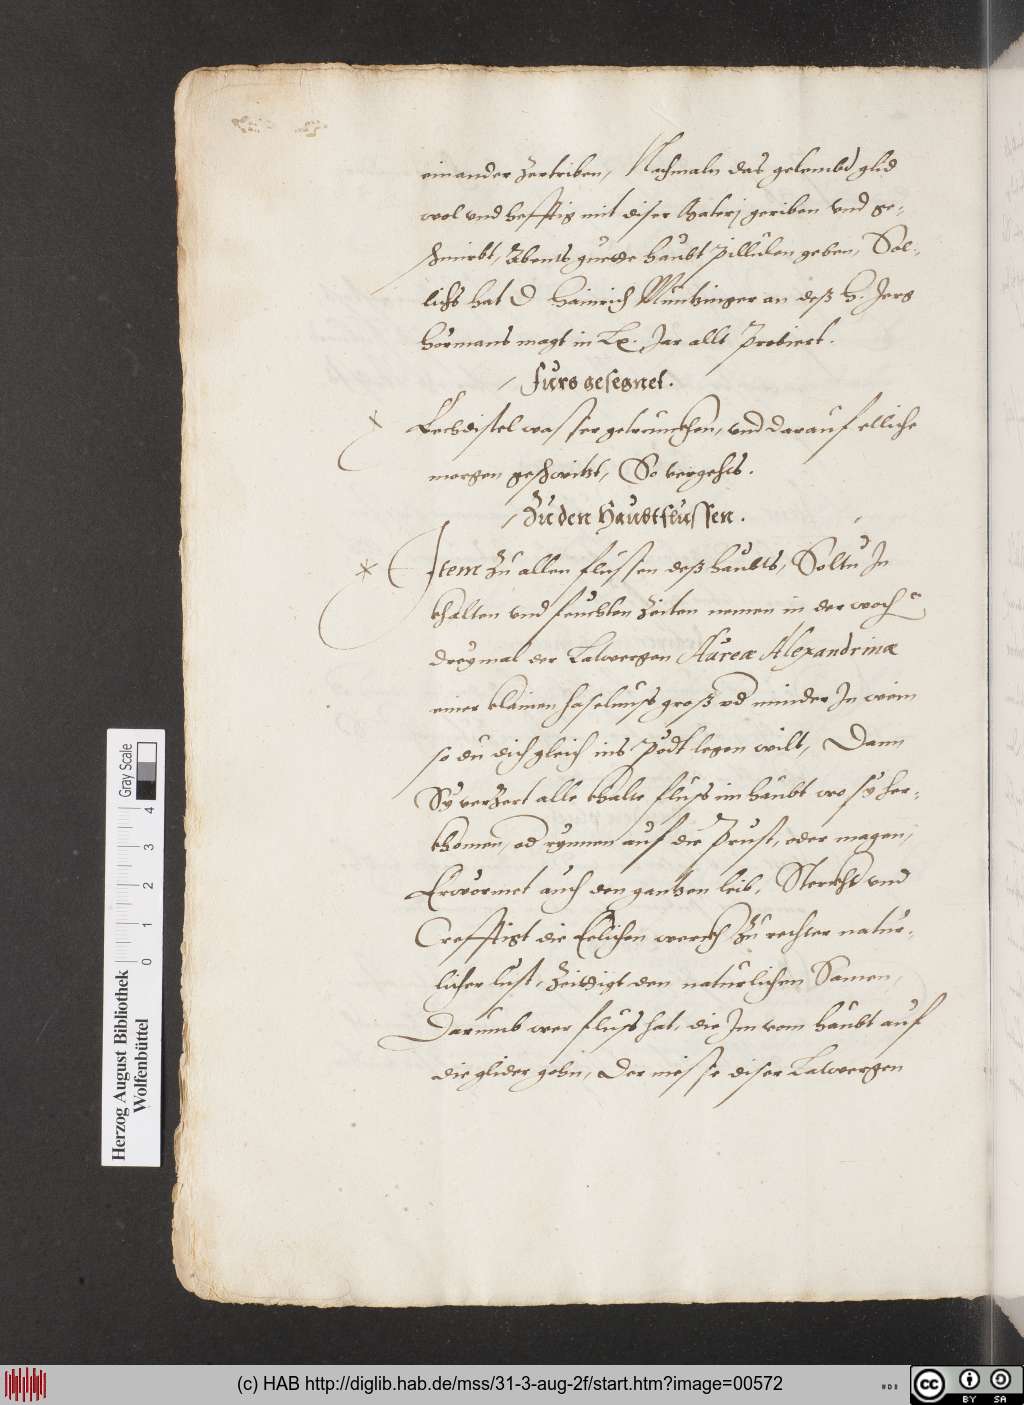 einander zertriben, Nachmaln das gelembd glid
wol und hefftig mit diser Materj geriben vnd ge-
schmirbt, Abents guette haubt Pillulen geben, Sol-
lichs hat D Hainrich Muntzinger an deß H. Jerg
Hörmans magt in Lx. Jar allt Probiert.
furs gesegnet.
wasser getrunckhen, vnd darauf etliche
morgen geschwitzt, So vergehts.
Zu den Haubtflussen.
Item Zu allen flüssen deß haubts, Soltu In
khalten vnd feuchten Zeiten nemen in der woch
dreymal der Latwergen Aureæ Alexandrinæ
einer klainen haselnuss groß od minder In wein
so du dich gleich ins Pödt legen wilt, Dann
Sy verzert alle khalte fluss im haubt wo sy her-
khomen, od rynnen auf die Prust, oder magen,
Erwörmet auch den gantzen leib, Sterckht vnd
Crefftigt die Eelichen werckh Zu rechter natur-
licher lust, Zeittigt den naturlichen Samen,
Darumb wer fluss hat, die Im vom haubt auf
die glider gehn, Der niesse diser Latwergen
Herzog August Bibliothek
Wolfenbüttel
0 1 2 3 4
Gray Scale
(c) HAB http://diglib.hab.de/mss/31-3-aug-2f/start.htm?image=00572
cc BY SA